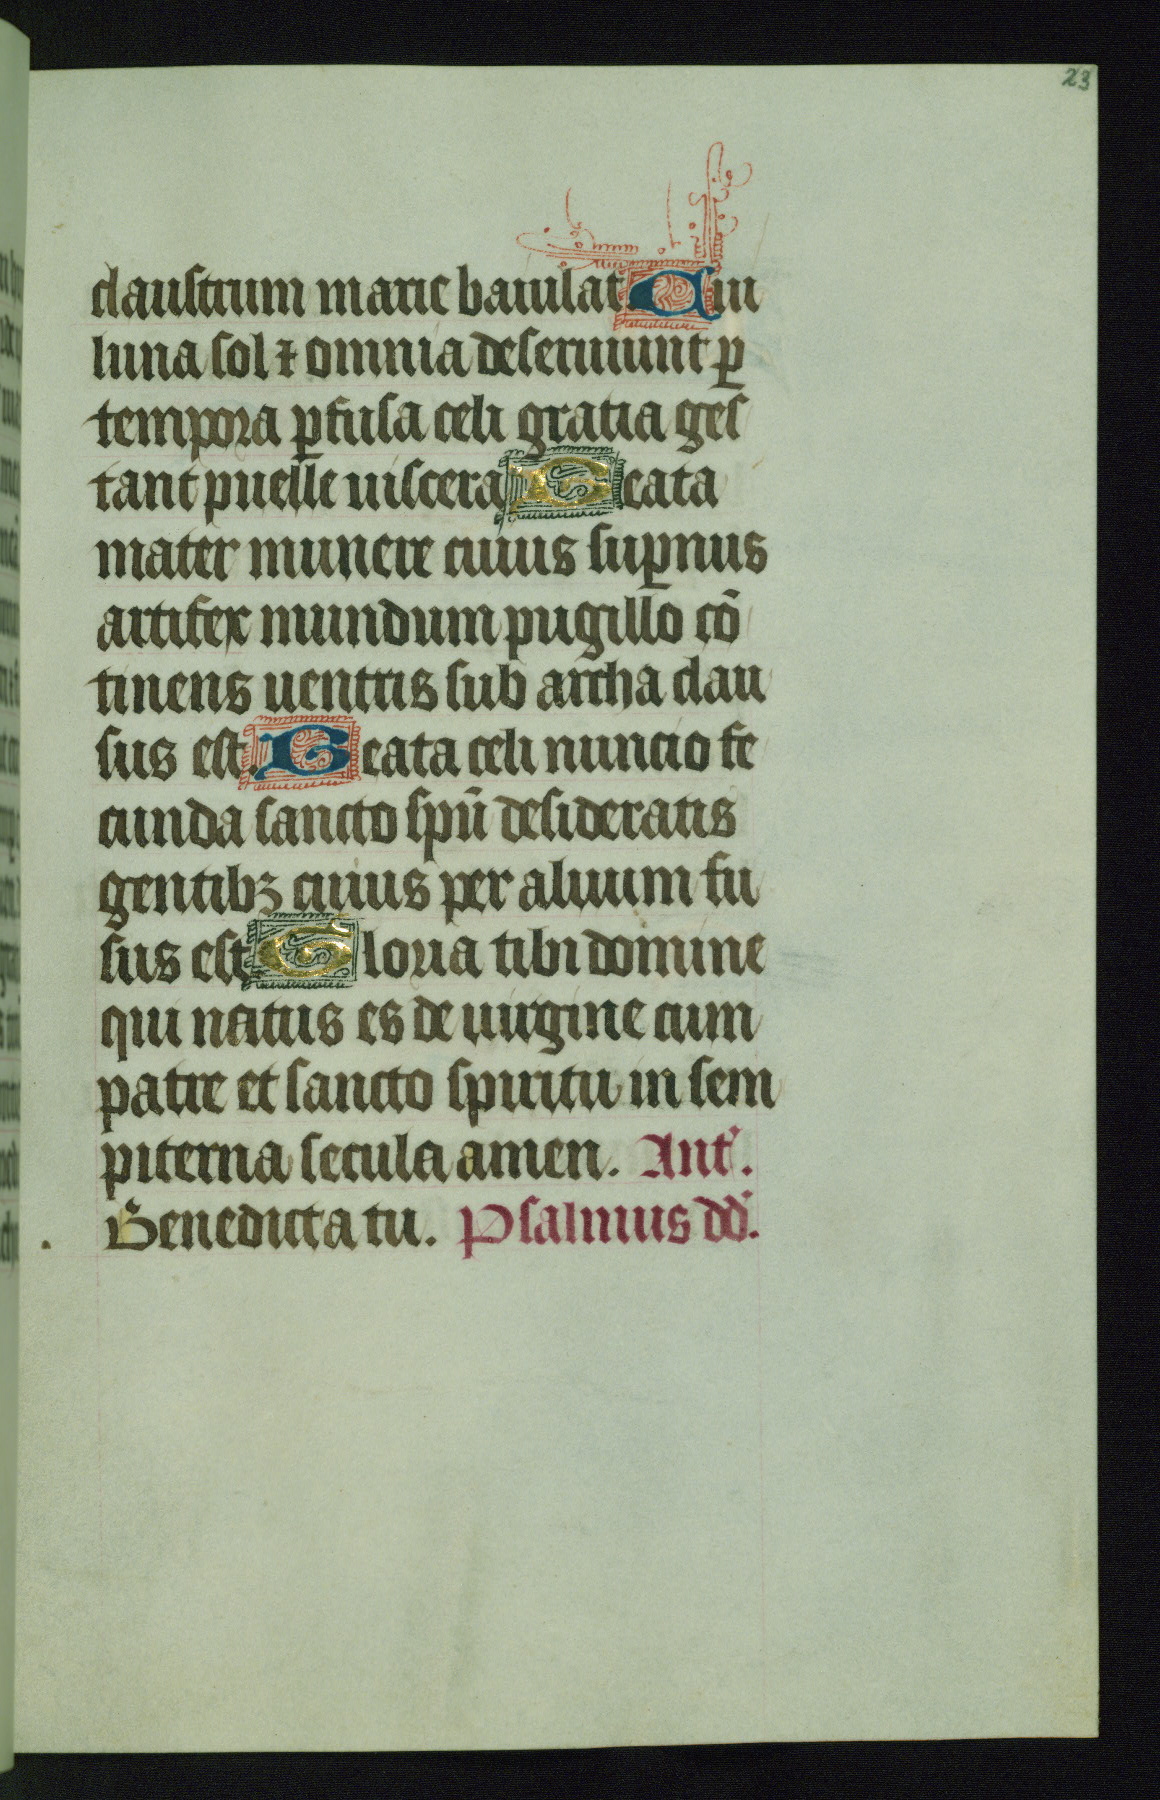 23
claustrum marie baiulat. Cui
luna sol ⁊ omnia deseruiunt ꝑ
tempora ꝑfusa celi gratia ges
tant puelle uiscera. Beata
mater munere cuius suꝑnus
artifex mundum pugillo cō
tinens uentris sub archa clau
sus est. Beata celi nuncio fe
cunda sancto spū desideratis
gentibꝫ cuius per aluum fu
sus est. Gloria tibi domine
qui natus es de uirgine cum
patre et sancto spiritu in sem
piterna secula amen. Ant̉.
Benedicta tu. Psalmus dd̉.